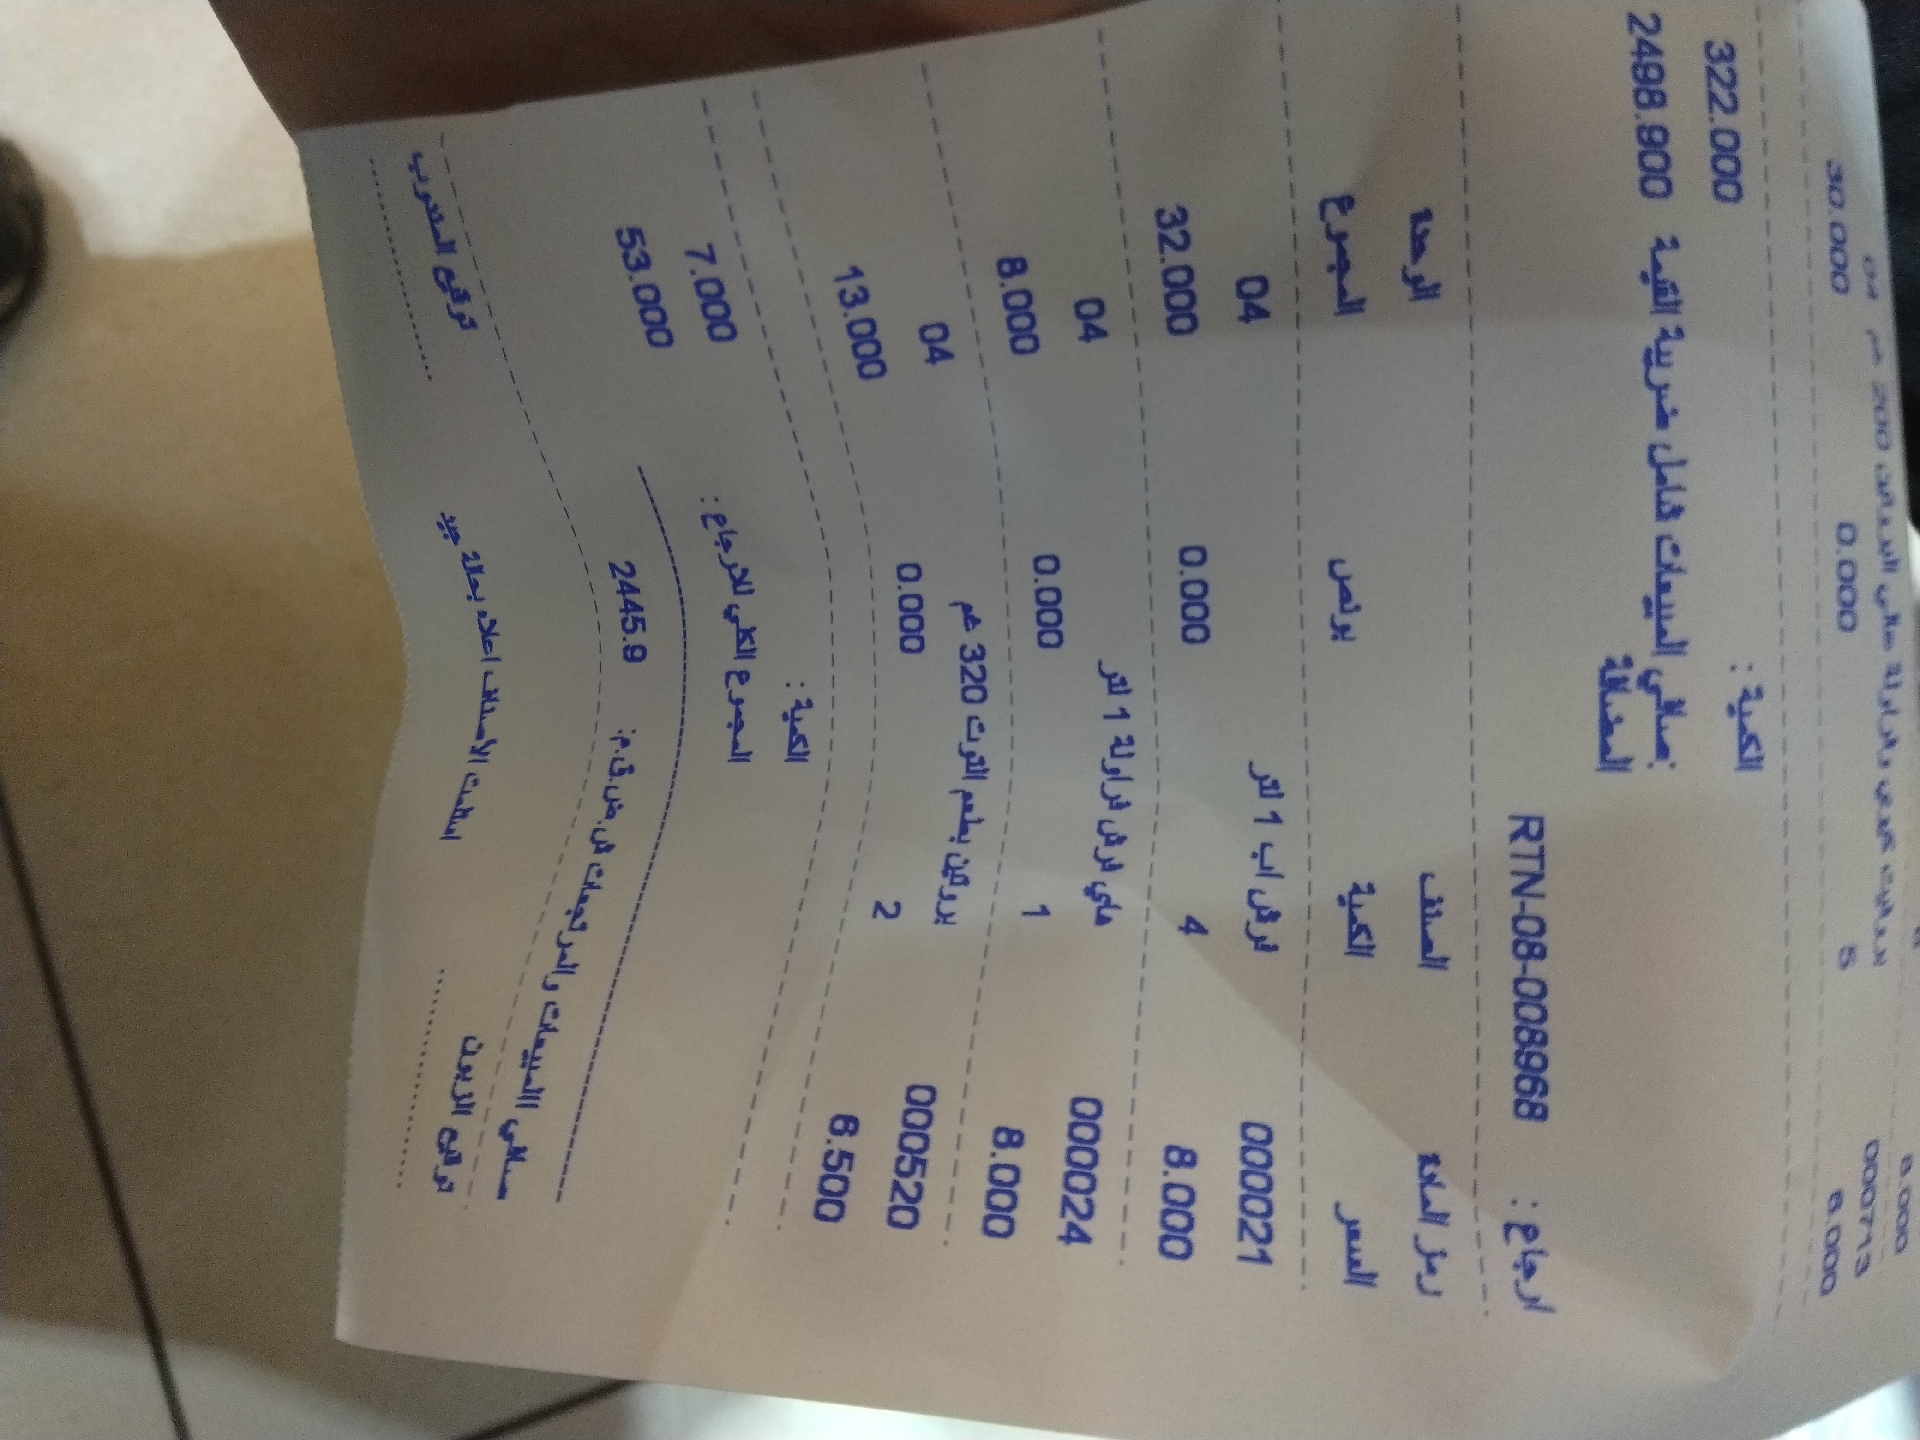 8.000
000713
30.000 0.000 5 6.000
322.000 الكمية :
2498.900 صافي المبيعات شامل ضريبة القيمة المضافة :
ارجاع : RTN-08-008968
رمز المادة الصنف الوحدة
السعر الكمية بونص المجموع
000021 فرش اب 1 لتر 04
8.000 4 0.000 32.000
000024 ماي فرش فراولة 1 لتر 04
8.000 1 0.000 8.000
000520 بروتين بطعم التوت 320 غم 04
6.500 2 0.000 13.000
الكمية : 7.000
المجموع الكلي للارجاع : 53.000
صافي االمبيعات والمرتجعات ش.ض.ق.م: 2445.9
توقيع الزبون استلمت الأصناف اعلاه بحالة جيد توقيع المندوب